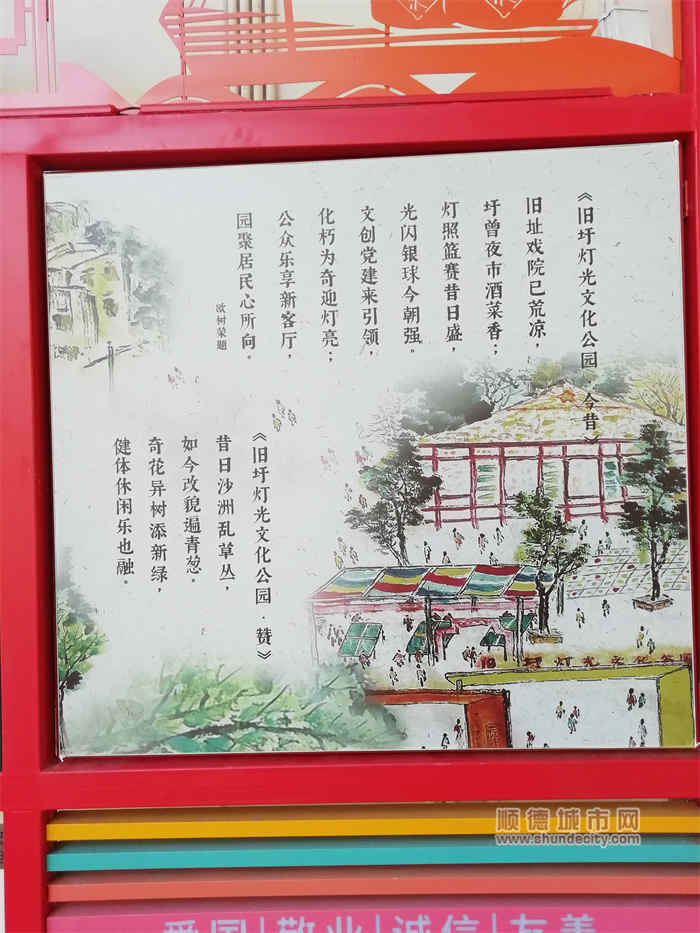 《旧圩灯光文化公园·今昔》
旧址戏院已荒凉，
圩曾夜市酒菜香；
灯照篮赛昔日盛，
光闪银球今朝强。
文创党建来引领，
化朽为奇迎灯亮；
公众乐享新客厅，
园聚居民心所向。
欧树荣题
《旧圩灯光文化公园·赞》
昔日沙洲乱草丛，
如今改貌遍青葱。
奇花异树添新绿，
健体休闲乐也融。
旧圩灯光文化公园
顺德城市网
www.chundecity.com
爱国|敬业|诚信|友善